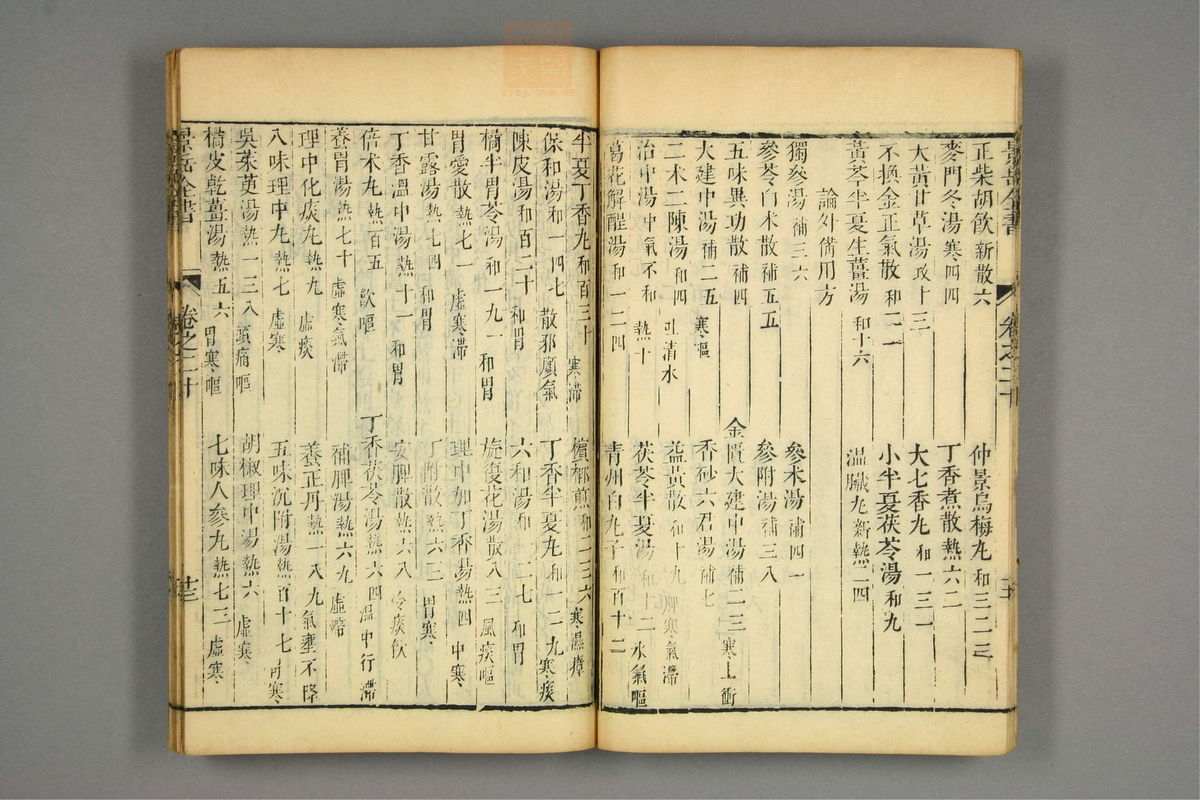 正柴胡飲新散六 仲景烏梅丸和三二三
麥門冬湯寒四四 丁香煮散熱六二
大黃甘草湯攻十三 大七香丸和一三一
不換金正氣散和二一 小半夏茯苓湯和九
黃芩半夏生薑湯和十六 溫臟丸新熱二四
論外備用方
獨參湯補三六 參术湯補四一
參苓白术散補五五 參附湯補三八
五味異功散補四 金匱大建中湯補二三寒上衝
大建中湯補二五寒嘔 香砂六君湯補七
二术二陳湯和四吐清水 益黃散和十九脾寒氣滯
治中湯中氣不和熱十 茯苓半夏湯和十二水氣嘔
葛花解酲湯和一二四 青州白丸子和百十二
半夏丁香丸和百三十寒滯 檳榔煎和二三六寒濕瘴
保和湯和一四七散邪順氣 丁香半夏丸和一二九寒痰
陳皮湯和百二十和胃 六和湯和十二七和胃
橘半胃苓湯和一九一和胃 旋復花湯散八三風痰嘔
胃愛散熱七一虛寒滯 理中加丁香湯熱四中寒
甘露湯熱七四和胃 丁附散熱六三胃寒
丁香溫中湯熱十一和胃 安脾散熱六八冷痰飲
倍术丸熱百五飲嘔 丁香茯苓湯熱六四溫中行滯
養胃湯熱七十虛寒氣滯 補脾湯熱六九虛滯
理中化痰丸熱九虛痰 養正丹熱一八九氣壅不降
八味理中丸熱七虛寒 五味沉附湯熱百十七寒
吳茱萸湯熱一三八頭痛嘔 胡椒理中湯熱六虛寒
橘皮乾薑湯熱五六胃寒嘔 七味人參丸熱七三虛寒
景岳全書 卷之二十